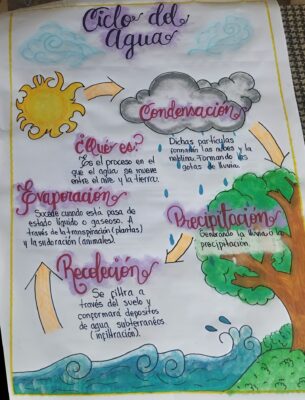 Ciclo del
Agua
Condensación
Dichas partículas
formarán las nubes y la
neblina. Formando las
gotas de lluvia.
¿Qué es?
Es el proceso en el
que el agua se mueve
entre el aire y la tierra.
Evaporación
Sucede cuando esta pasa de
estado líquido a gaseoso. A
través de la transpiración (plantas)
y la sudoración (animales).
Precipitación
Generando la lluvia o la
precipitación.
Recoleción
Se filtra a
través del suelo y
conformará depositos
de agua subterraneos
(infiltración).